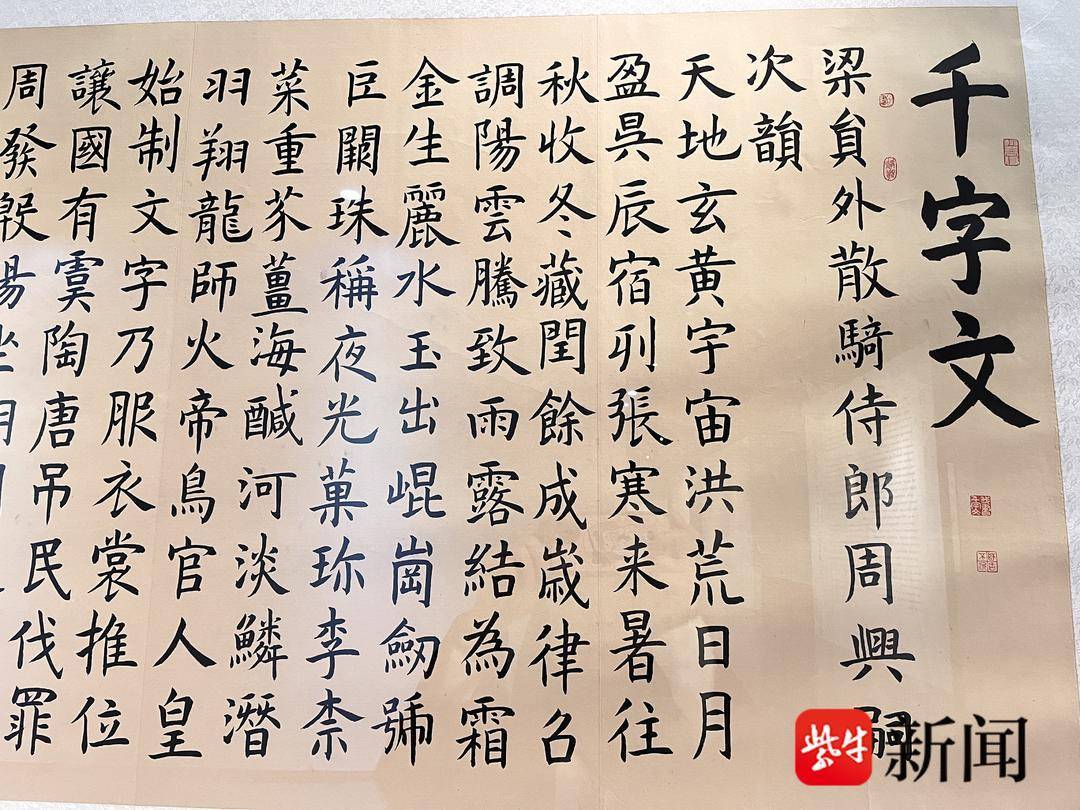 千字文
梁貟外散騎侍郎周興嗣
次韻
天地玄黃宇宙洪荒日月
盈昃辰宿列張寒来暑往
秋收冬藏閏餘成歲律召
調陽雲騰致雨露結為霜
金生麗水玉出崐崗劒號
巨闕珠稱夜光菓珎李柰
菜重芥薑海醎河淡鱗潛
羽翔龍師火帝鳥官人皇
始制文字乃服衣裳推位
讓國有虞陶唐吊民伐罪
周發殷湯坐朝
紫牛新闻